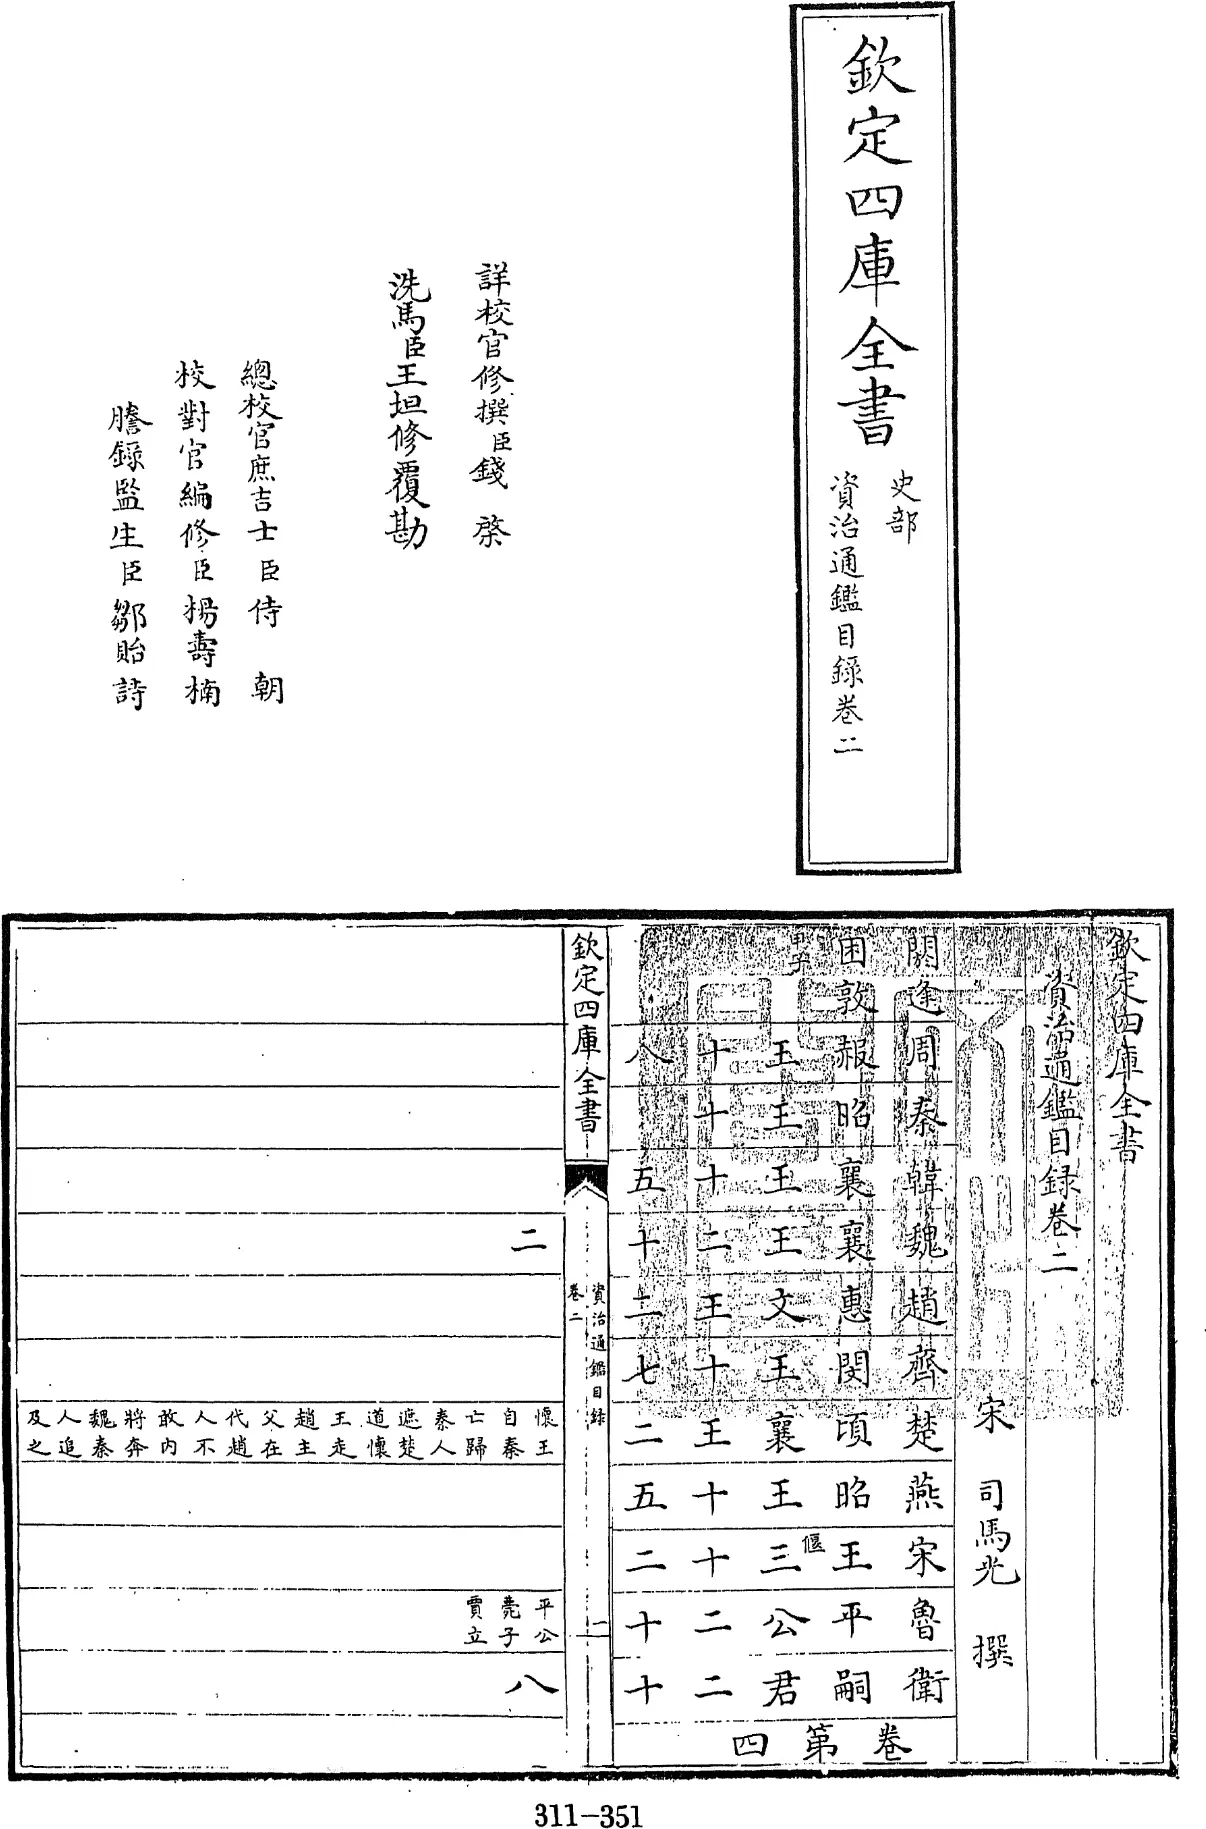 欽定四庫全書
史部
資治通鑑目錄卷二
詳校官修撰臣錢棨
洗馬臣王坦修覆勘
總校官庶吉士臣侍朝
校對官編修臣楊壽楠
謄錄監生臣鄒貽詩
欽定四庫全書
資治通鑑目錄卷二
宋 司馬光 撰
閼逢困敦 甲子
周赧王十八
秦昭王十
韓襄王十五
魏襄王二十
趙惠文王二
齊閔王十七
楚頃襄王二
燕昭王十五
宋王偃三十二
魯平公二十
衛嗣君二十
卷第四
欽定四庫全書
資治通鑑目錄
卷二
一
二
懷王自秦亡歸秦人遮楚道懷王走趙主父在代趙人不敢内將奔魏秦人追及之
平公薨子賈立
八
311-351